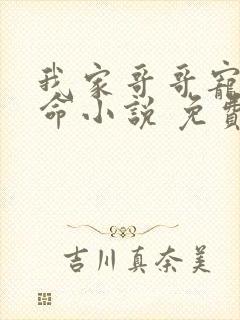 我家哥哥寵
命小説 免費
吉川真奈美